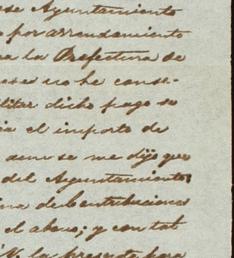 ese Ayuntamiento
por arrendamiento
la Prefectura de
ese no he consti-
litar dicho pago se
el importe de
se me dijo que
del Ayuntamiento
ina de Contribuciones
el abono; y con tal
la presente para